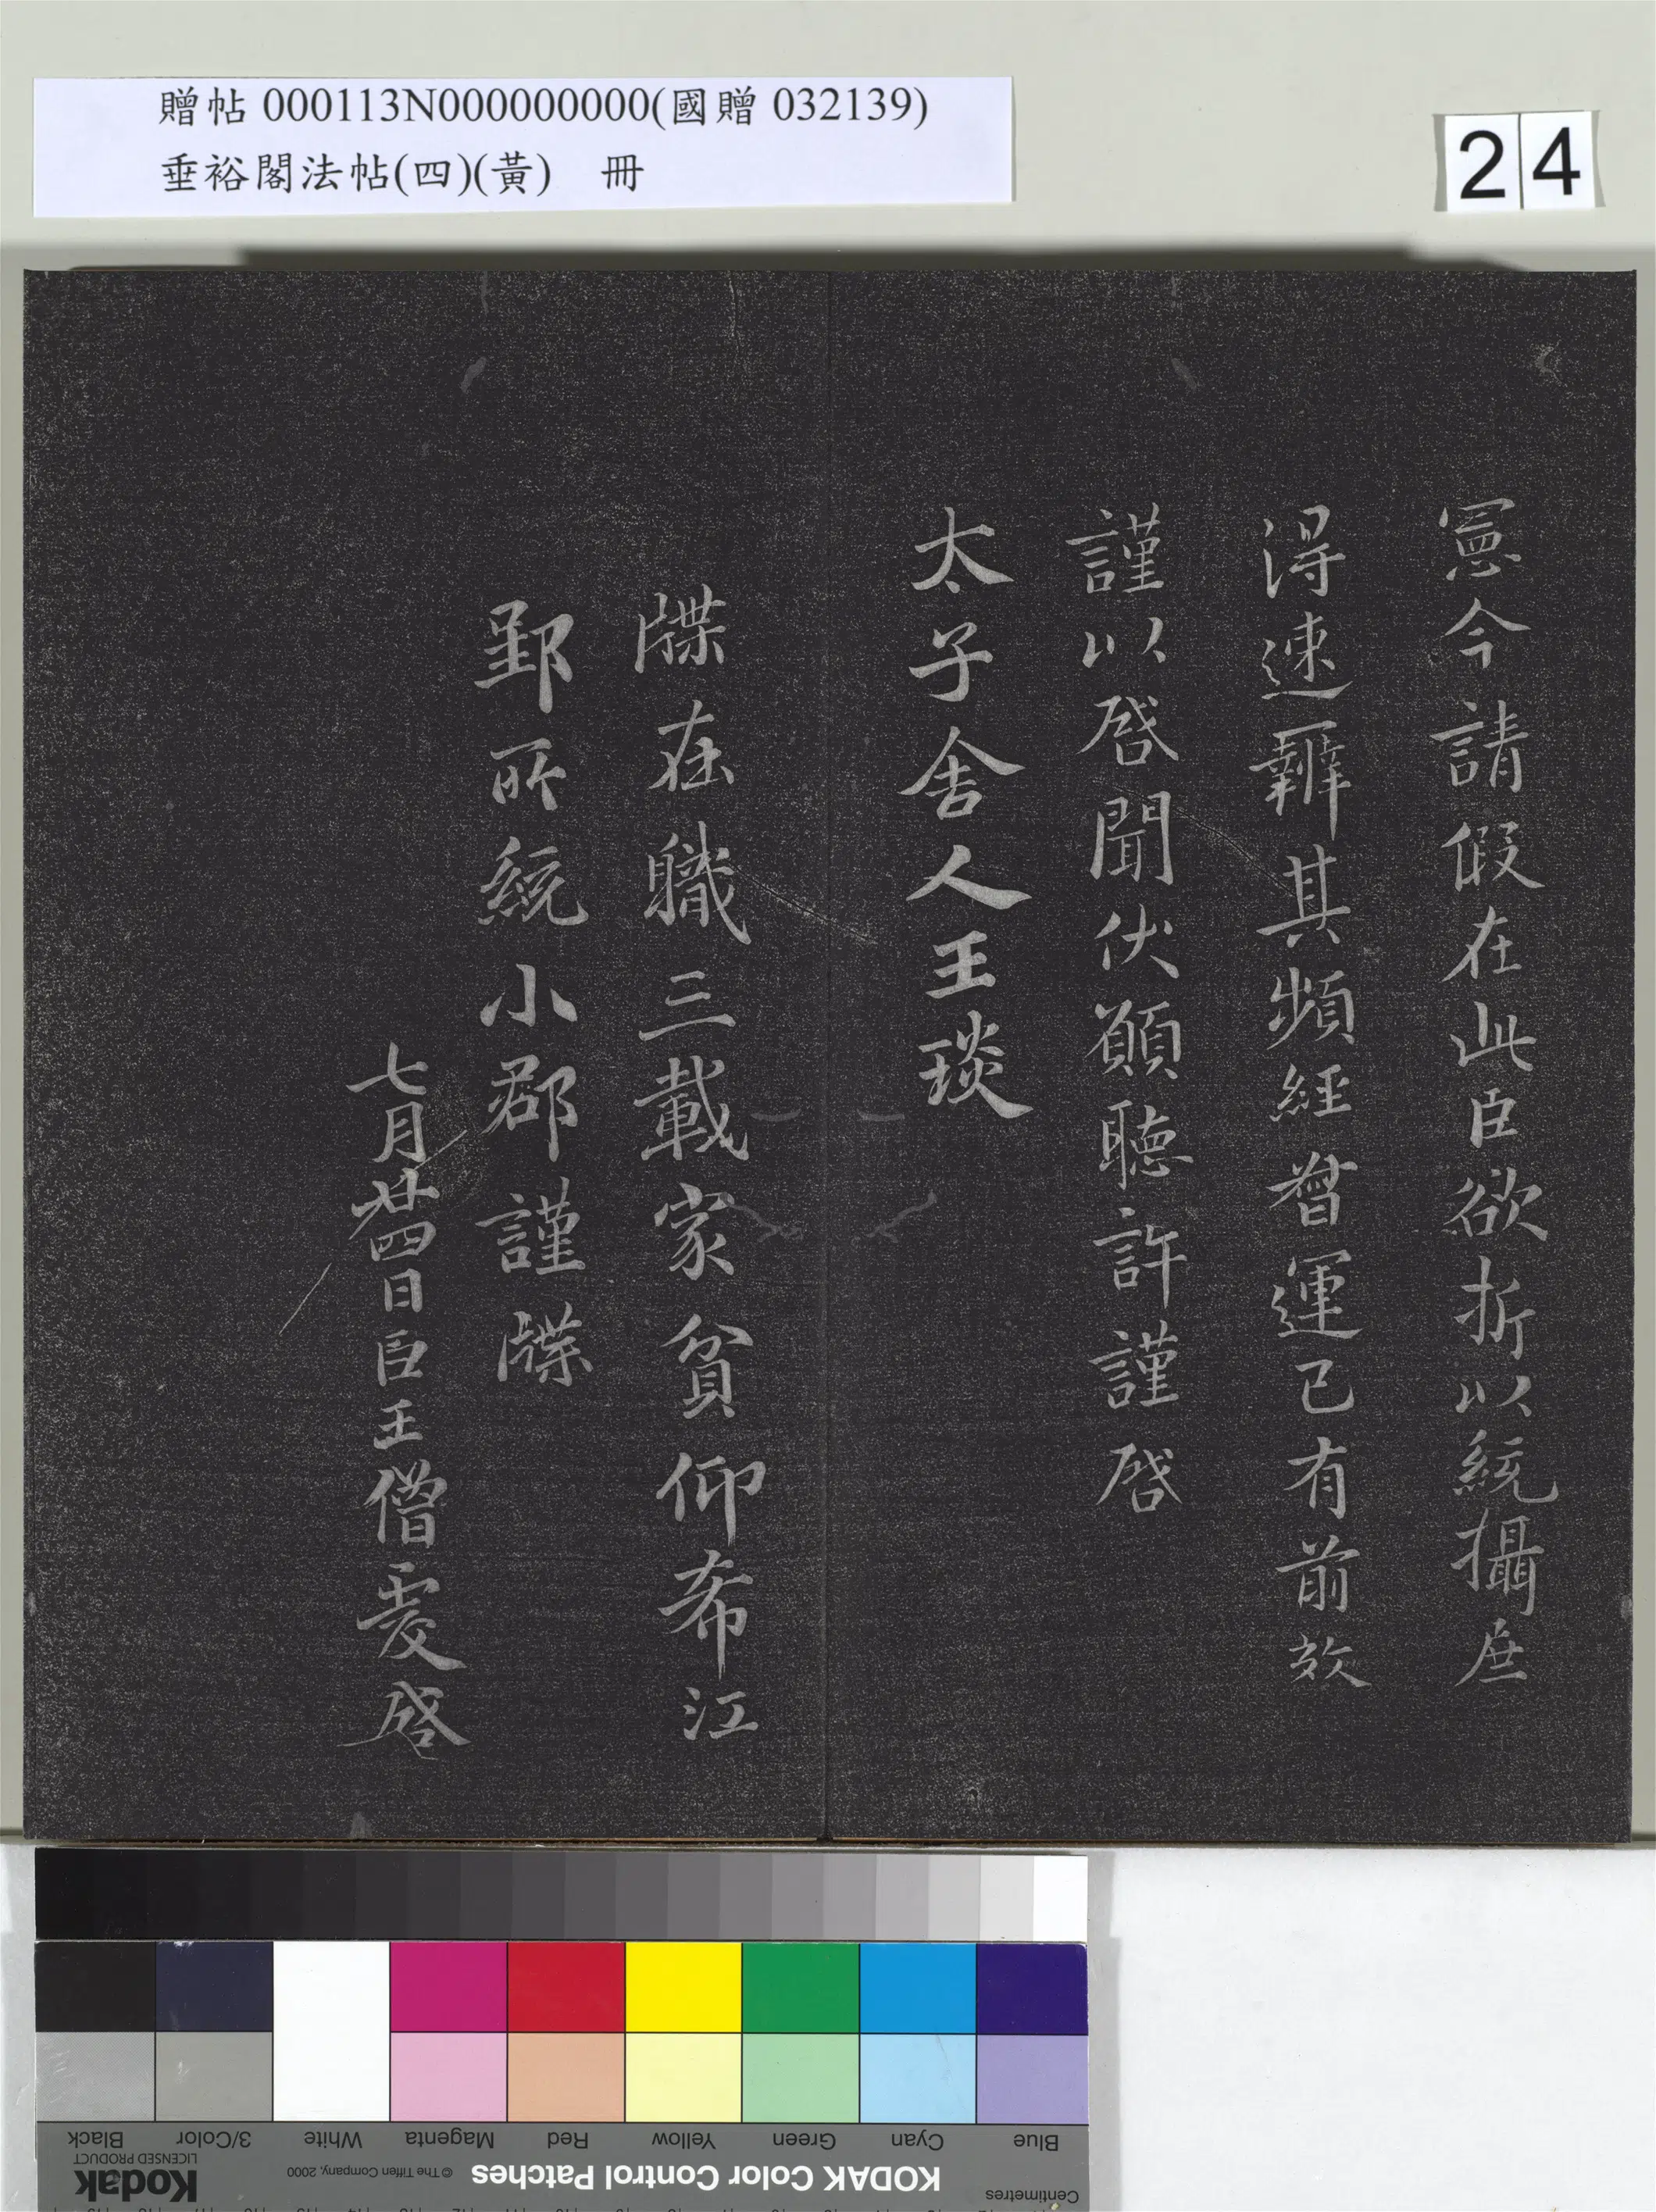 贈帖 000113N000000000(國贈 032139)
垂裕閣法帖(四)(黃)　冊
24
憲今請假在此臣欲折以統攝庶
得速辦其頻經督運已有前效
謹以啓聞伏願聽許謹啓
太子舍人王琰
牒在職三載家貧仰希江
郢所統小郡謹牒
七月廿四日臣王僧虔啓
Black
3/Color
White
Magenta
Red
Yellow
Green
Cyan
Blue
Kodak
LICENSED PRODUCT
© The Tiffen Company, 2000
KODAK Color Control Patches
Centimetres